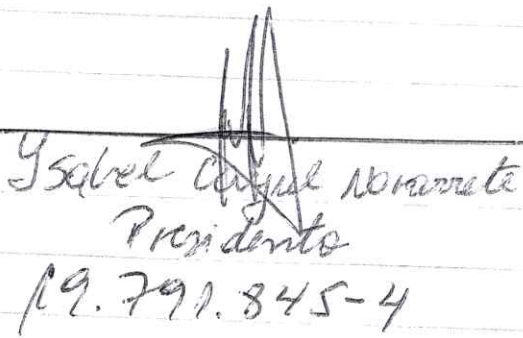 Ysabel Cayul Navarrete
Presidenta
19.791.845-4